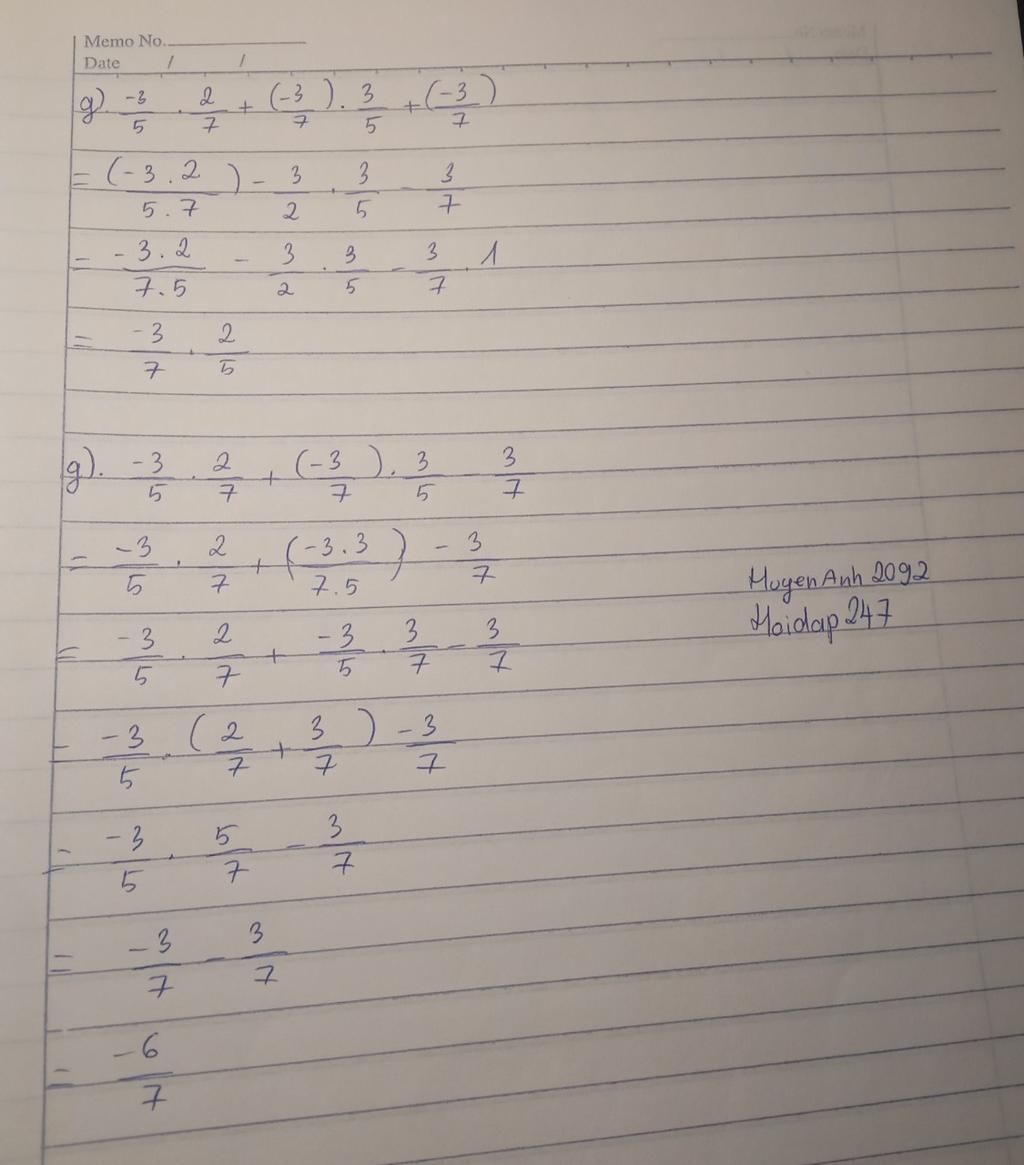 Memo No.
Date / /
g) -3/5 . 2/7 + (-3/7) . 3/5 + (-3/7)
= (-3.2/5.7) - 3/2 . 3/5 - 3/7
= -3.2/7.5 - 3/2 . 3/5 - 3/7 . 1
= -3/7 . 2/5
g). -3/5 . 2/7 + (-3/7) . 3/5 - 3/7
= -3/5 . 2/7 + (-3.3/7.5) - 3/7
= -3/5 . 2/7 + -3/5 . 3/7 - 3/7
= -3/5 . (2/7 + 3/7) - 3/7
= -3/5 . 5/7 - 3/7
= -3/7 - 3/7
= -6/7
HuyenAnh 2092
Hoidap 247